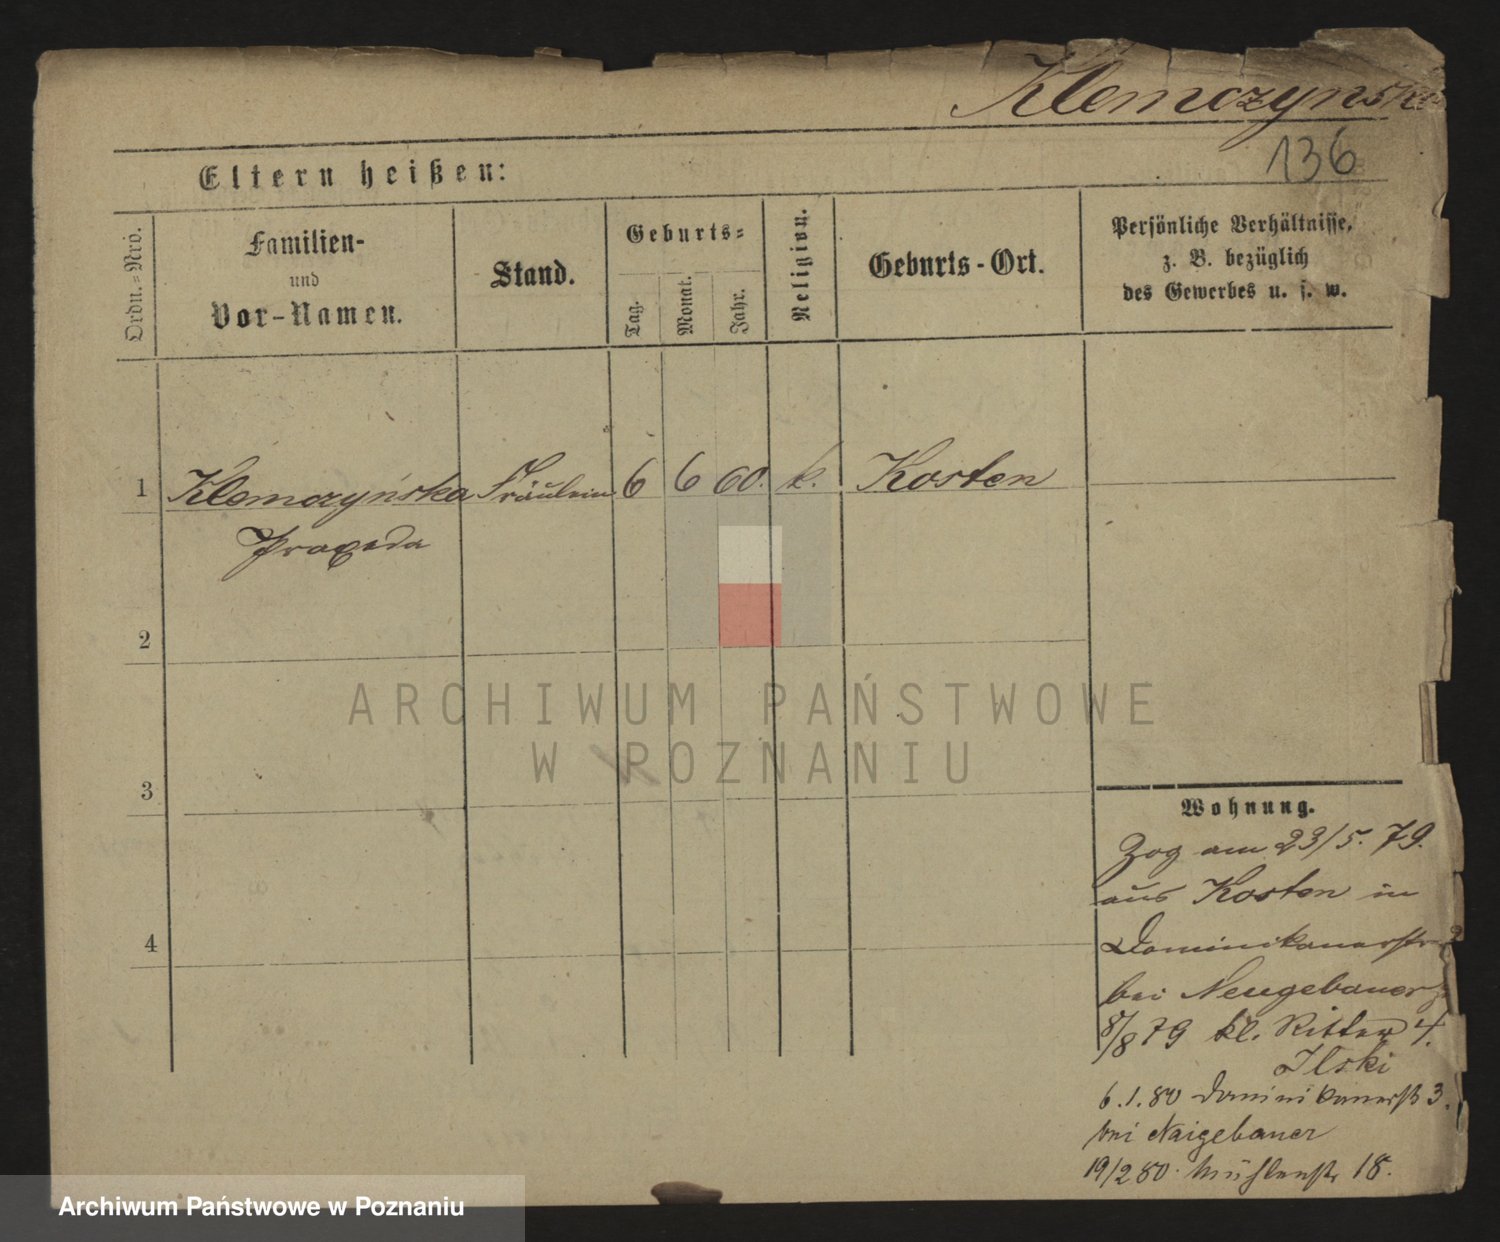 Klemczynska
136
Eltern heißen:
Ordn.-Nro.
Familien-
und
Vor-Namen.
Stand.
Geburts-
Tag.
Monat.
Jahr.
Religion.
Geburts-Ort.
Persönliche Verhältnisse,
z. B. bezüglich
des Gewerbes u. s. w.
1 Klemczyńska Fräulein 6 6 60. k. Kosten
Praxeda
2
3
4
Wohnung.
Zog am 23/5. 79.
aus Kosten in
Dominikanerstr
bei Neugebauer
8/8 79 kl. Ritter 4.
Ilski
6.1.80 Dominikanerstr 3.
bei Naigebauer
19/2 80. Mühlenstr 18.
ARCHIWUM PAŃSTWOWE
W POZNANIU
Archiwum Państwowe w Poznaniu